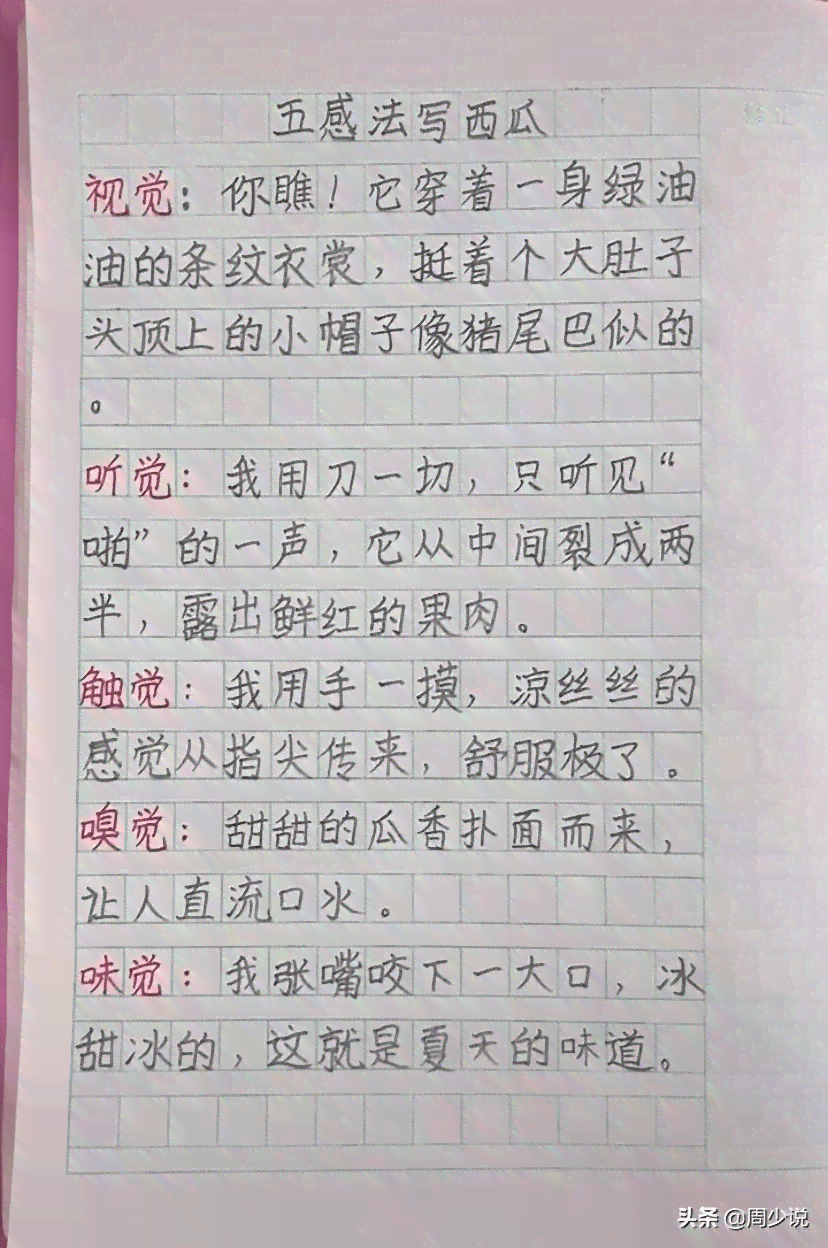 五感法写西瓜
视觉：你瞧！它穿着一身绿油
油的条纹衣裳，挺着个大肚子
头顶上的小帽子像猪尾巴似的
。
听觉：我用刀一切，只听见“
啪”的一声，它从中间裂成两
半，露出鲜红的果肉。
触觉：我用手一摸，凉丝丝的
感觉从指尖传来，舒服极了。
嗅觉：甜甜的瓜香扑面而来，
让人直流口水。
味觉：我张嘴咬下一大口，冰
甜冰的，这就是夏天的味道。
头条 @周少说